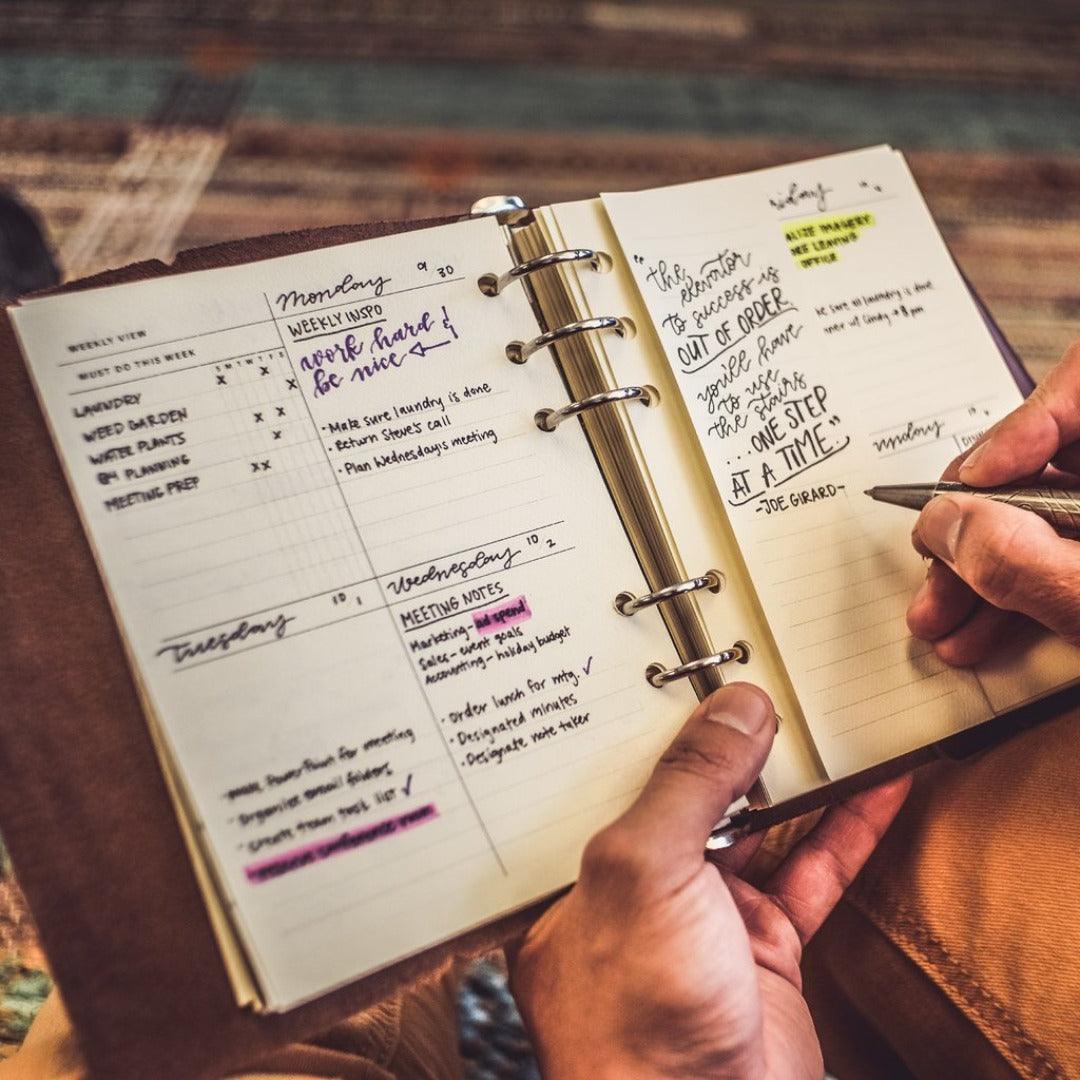 WEEKLY VIEW
MUST DO THIS WEEK
S M T W T F S
LAUNDRY X X
WEED GARDEN X
WATER PLANTS X X
Q4 PLANNING X
MEETING PREP XX
Monday 9 30
WEEKLY INSPO
work hard &
be nice
· Make sure laundry is done
· Return Steve's call
· Plan Wednesday's meeting
Tuesday 10 1
· Make PowerPoint for meeting
· organize email folders
· Create team task list ✓
conference room
Wednesday 10 2
MEETING NOTES
Marketing - ad spend
Sales - event goals
Accounting - holiday budget
· Order lunch for mtg. ✓
· Designated minutes
· Designate note taker
"the
elevator
to success is
OUT OF ORDER
you'll have
to use
the stairs
...ONE STEP
AT A TIME..."
-JOE GIRARD-
OFFICE
sure all laundry is done
w/ Cindy → 8pm